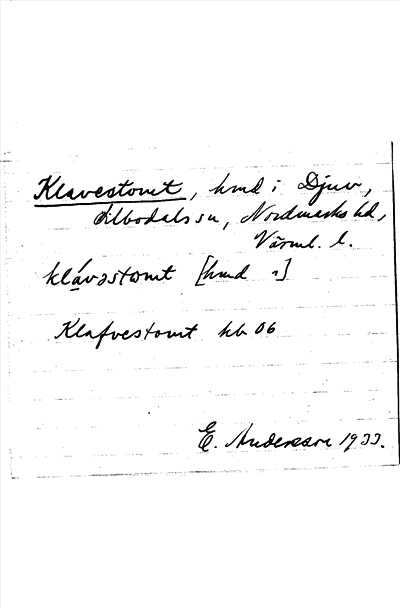 Klavestomt, hmd i Djuv,
Silbodals sn, Nordmarks hd,
Värml. l.
klávəstomt [hmd
Klafvestomt kb 06
E. Andersson 1933.